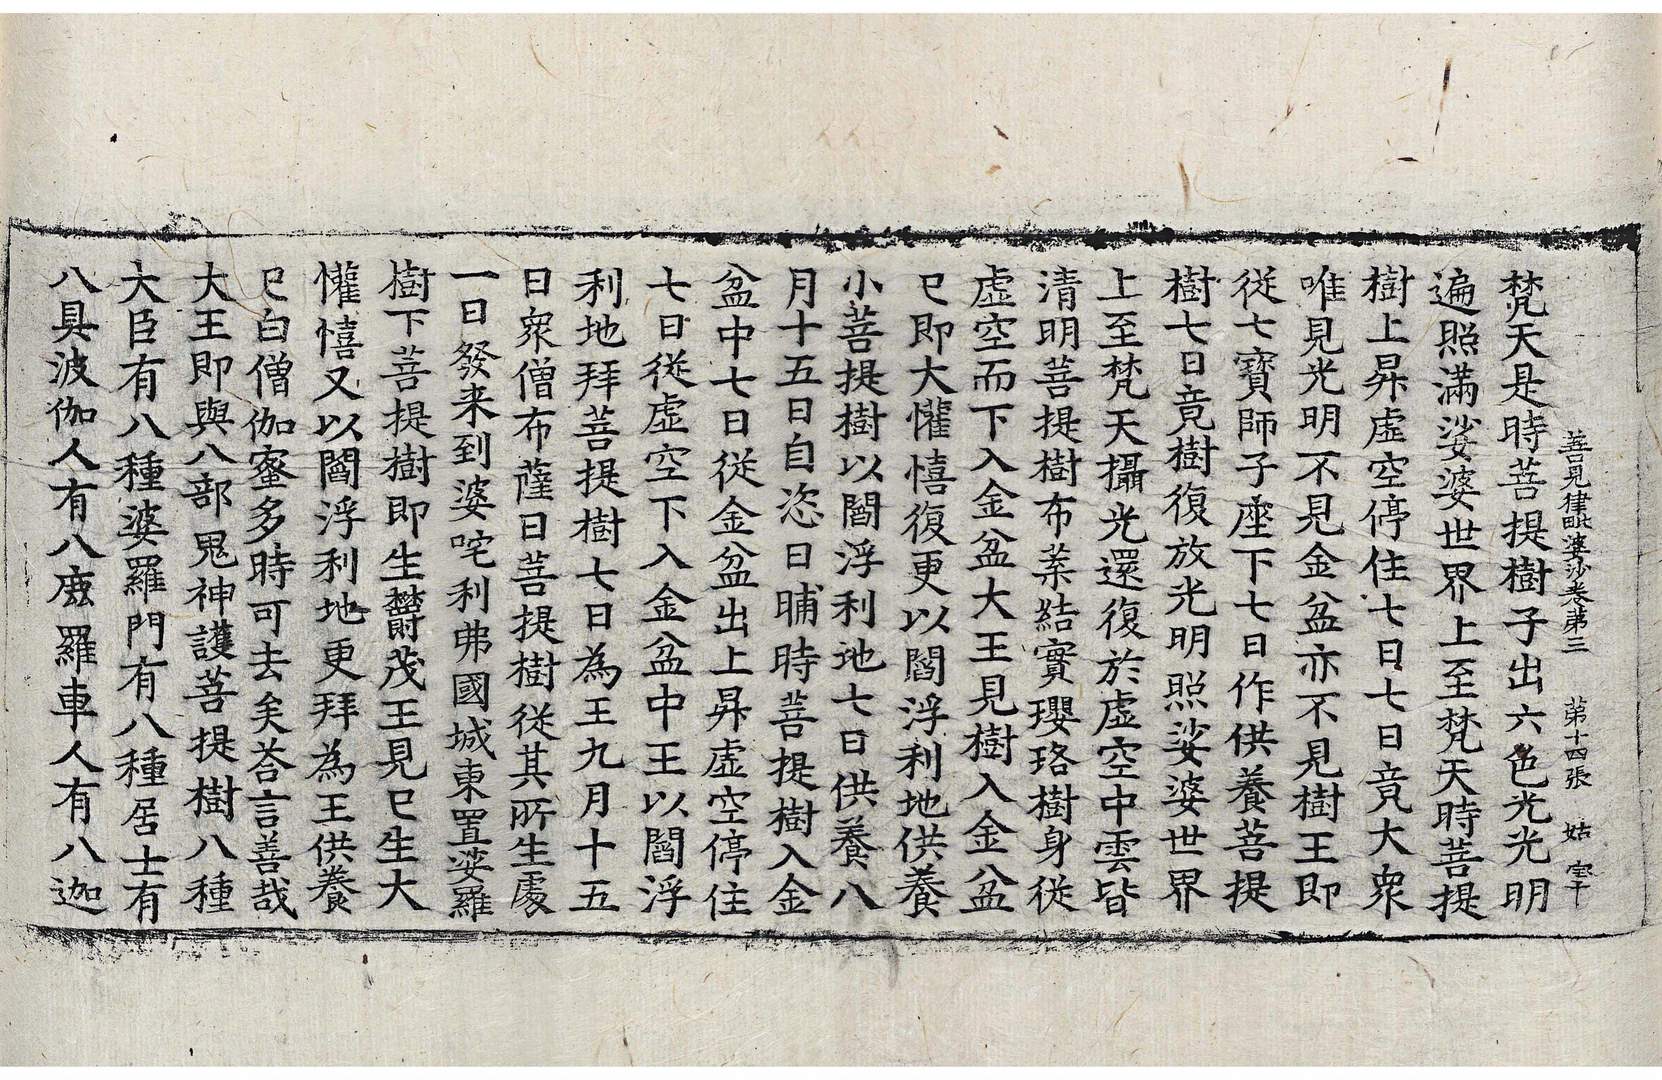 善見律毗婆沙卷第三 第十四張 姑 字
梵天是時菩提樹子出六色光光明
遍照滿娑婆世界上至梵天時菩提
樹上昇虛空停住七日七日竟大衆
唯見光明不見金盆亦不見樹王即
從七寶師子座下七日作供養菩提
樹七日竟樹復放光明照娑婆世界
上至梵天攝光還復於虛空中雲皆
清明菩提樹布葉結實瓔珞樹身從
虛空而下入金盆大王見樹入金盆
已即大懽憘復更以閻浮利地供養
小菩提樹以閻浮利地七日供養八
月十五日自恣日晡時菩提樹入金
盆中七日從金盆出上昇虛空停住
七日從虛空下入金盆中王以閻浮
利地拜菩提樹七日為王九月十五
日衆僧布薩日菩提樹從其所生處
一日發来到婆咤利弗國城東置娑羅
樹下菩提樹即生欝茂王見已生大
懽憘又以閻浮利地更拜為王供養
已白僧伽蜜多時可去矣荅言善哉
大王即與八部鬼神護菩提樹八種
大臣有八種婆羅門有八種居士有
八具波伽人有八鹿羅車人有八迦